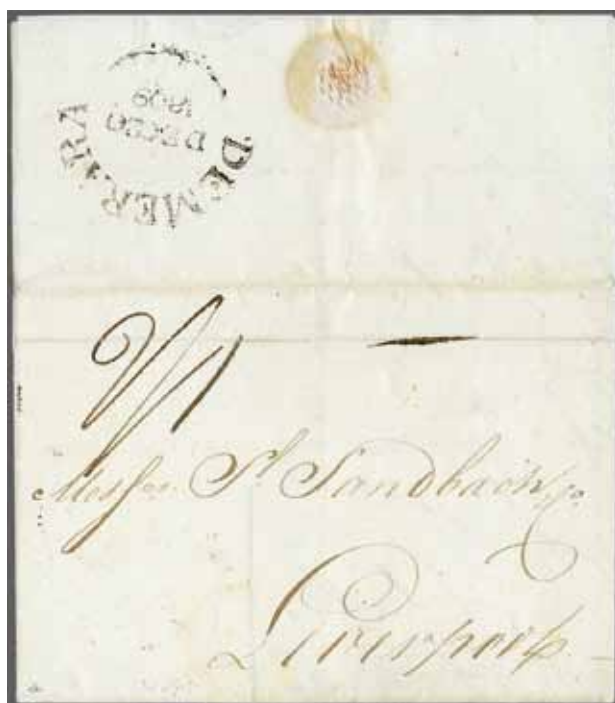 DEMERARA
DEC 20
1809
2/1
Messrs. Sl. Sandbach & Co.
Liverpool